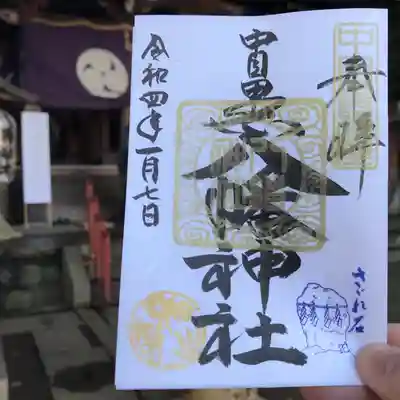 奉拝
中目黒八幡神社
令和四年一月七日
さざれ石